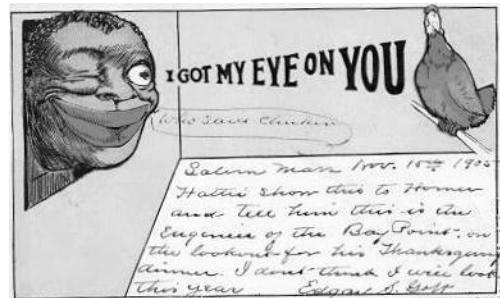 I GOT MY EYE ON YOU
Who said Chicken
Salem Mass Nov. 15th 1905
Hattie show this to Homer
and tell him this is the
Engineer of the Bay Point. on
the lookout for his Thanksgiving
dinner. I dont think I will look
this year Edgar S. Goff